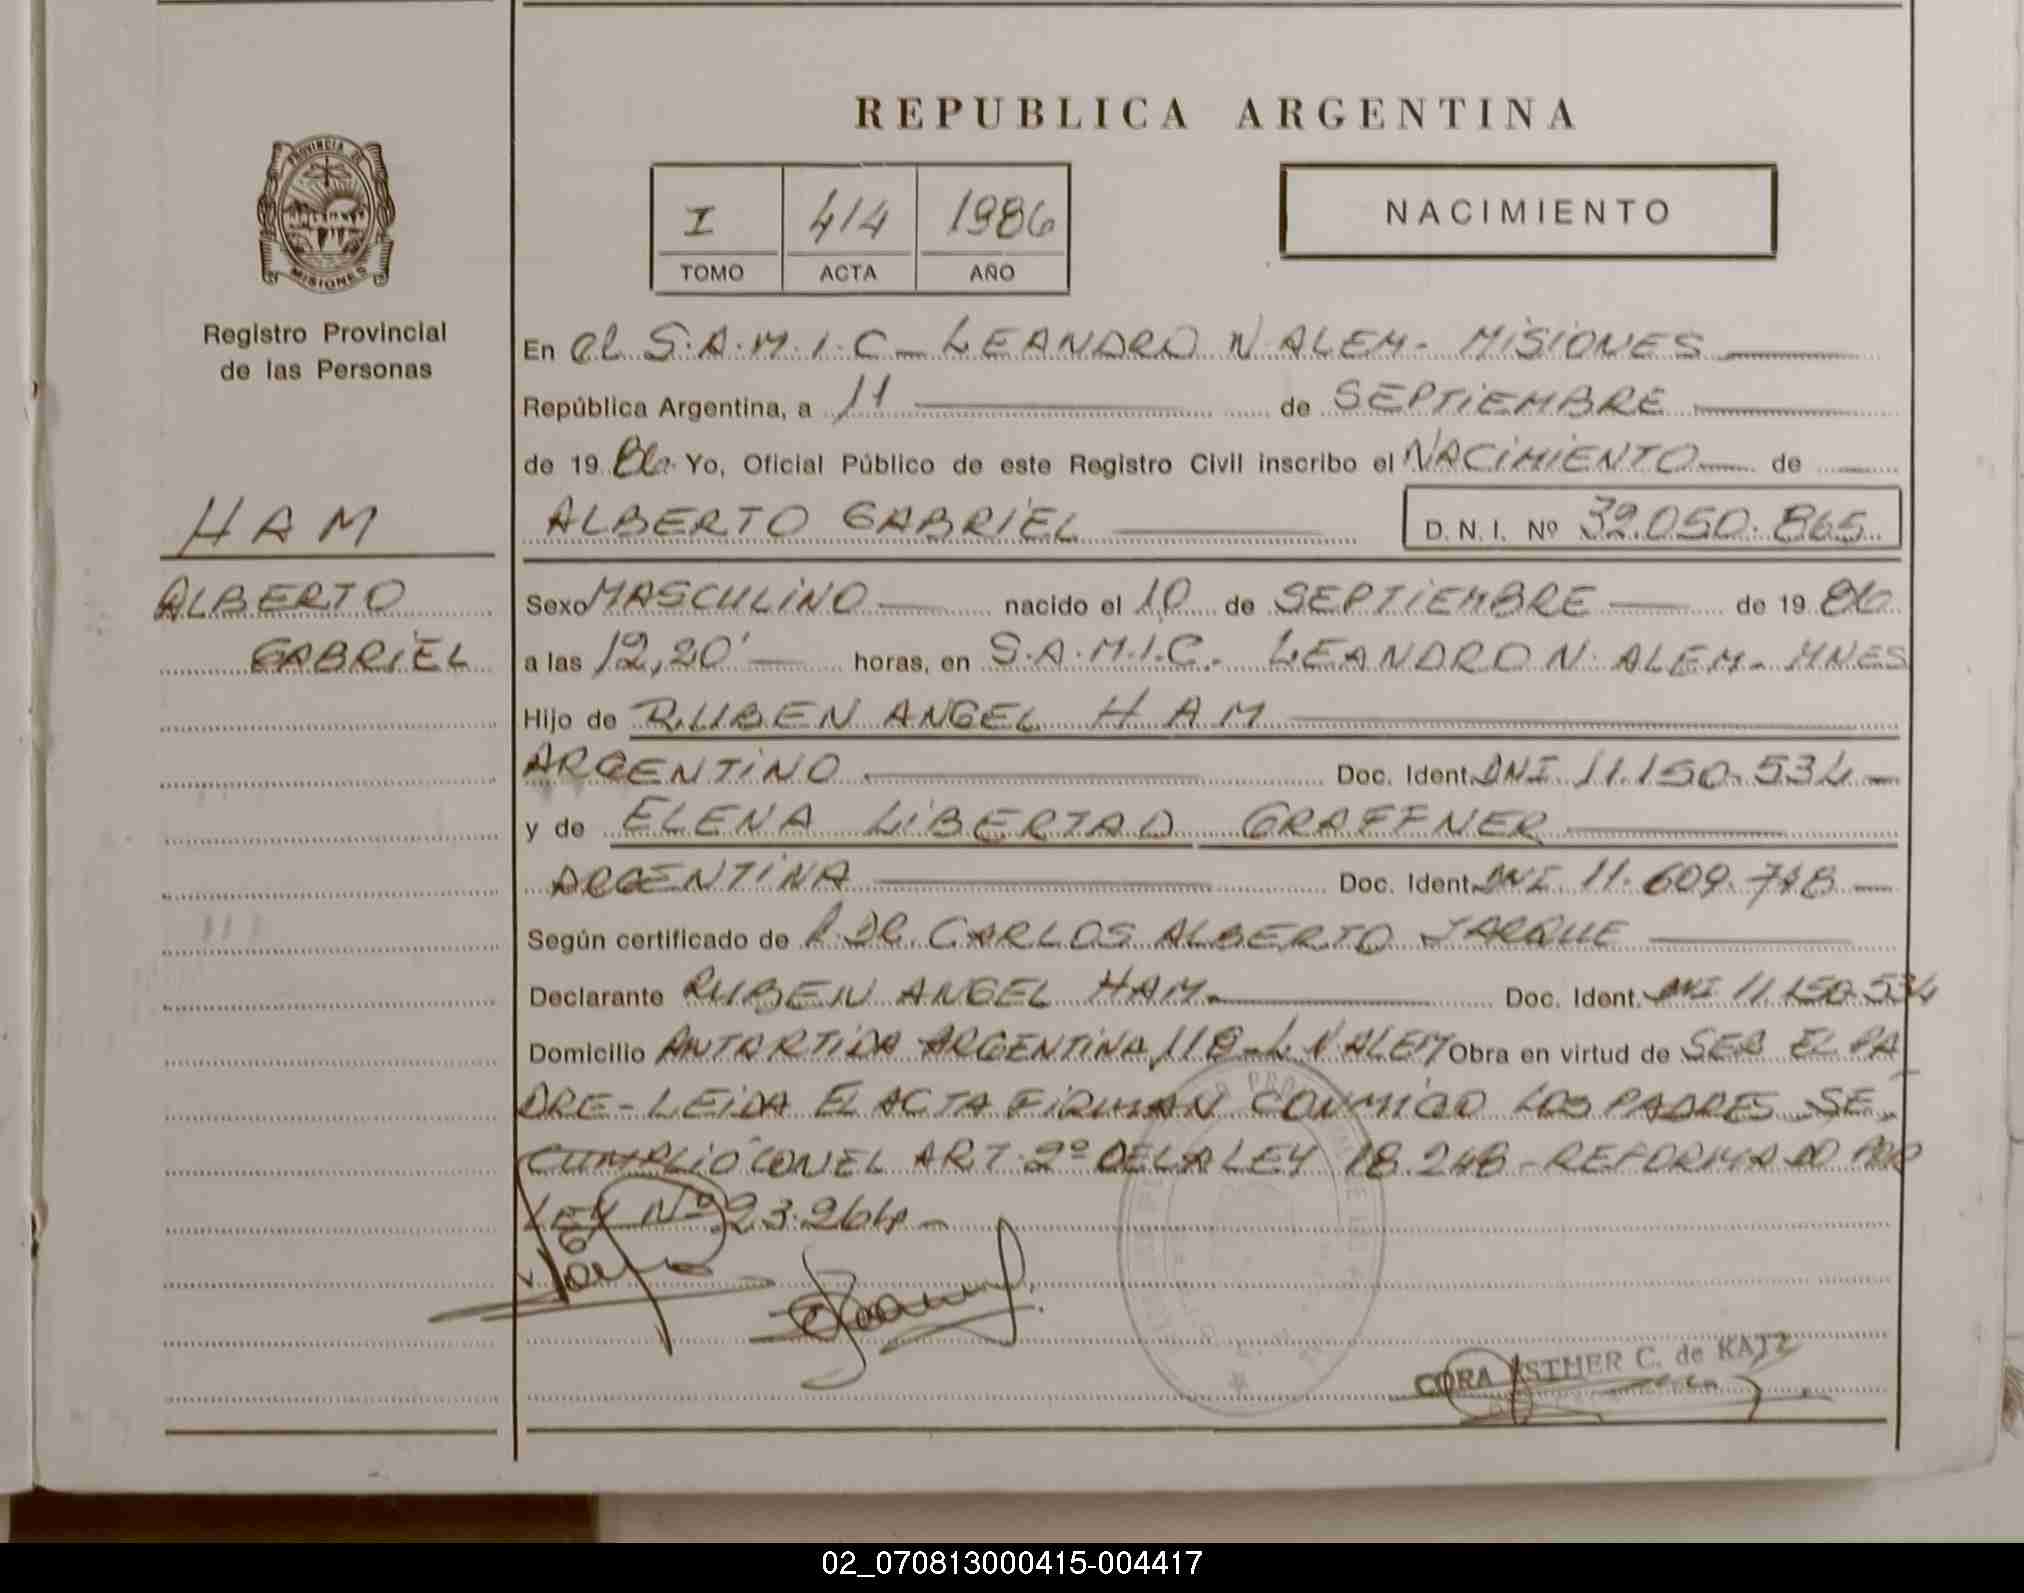 REPUBLICA ARGENTINA
PROVINCIA DE
MISIONES
Registro Provincial
de las Personas
I 414 1986
TOMO ACTA AÑO
NACIMIENTO
HAM
ALBERTO
GABRIEL
En el S.A.M.I.C - LEANDRO N. ALEM - MISIONES
República Argentina, a 11 de SEPTIEMBRE
de 19 86 Yo, Oficial Público de este Registro Civil inscribo el NACIMIENTO de
ALBERTO GABRIEL D. N. I. Nº 32.050.865
Sexo MASCULINO nacido el 10 de SEPTIEMBRE de 19 86
a las 12,20' horas, en S.A.M.I.C. LEANDRO N. ALEM - MNES
Hijo de RUBEN ANGEL HAM
ARGENTINO Doc. Ident. DNI 11.150.534
y de ELENA LIBERTAD GRAFFNER
ARGENTINA Doc. Ident. DNI 11.609.748
Según certificado de DR. CARLOS ALBERTO JARQUE
Declarante RUBEN ANGEL HAM Doc. Ident. DNI 11.150.534
Domicilio ANTARTIDA ARGENTINA 118 - L N ALEM Obra en virtud de SER EL PA
DRE - LEIDA EL ACTA FIRMAN CONMIGO LOS PADRES SE
CUMPLIÓ CON EL ART. 2º DE LA LEY 18.248 - REFORMADO POR
LEY Nº 23.264 -
CORA ESTHER C. de KATZ
02_070813000415-004417